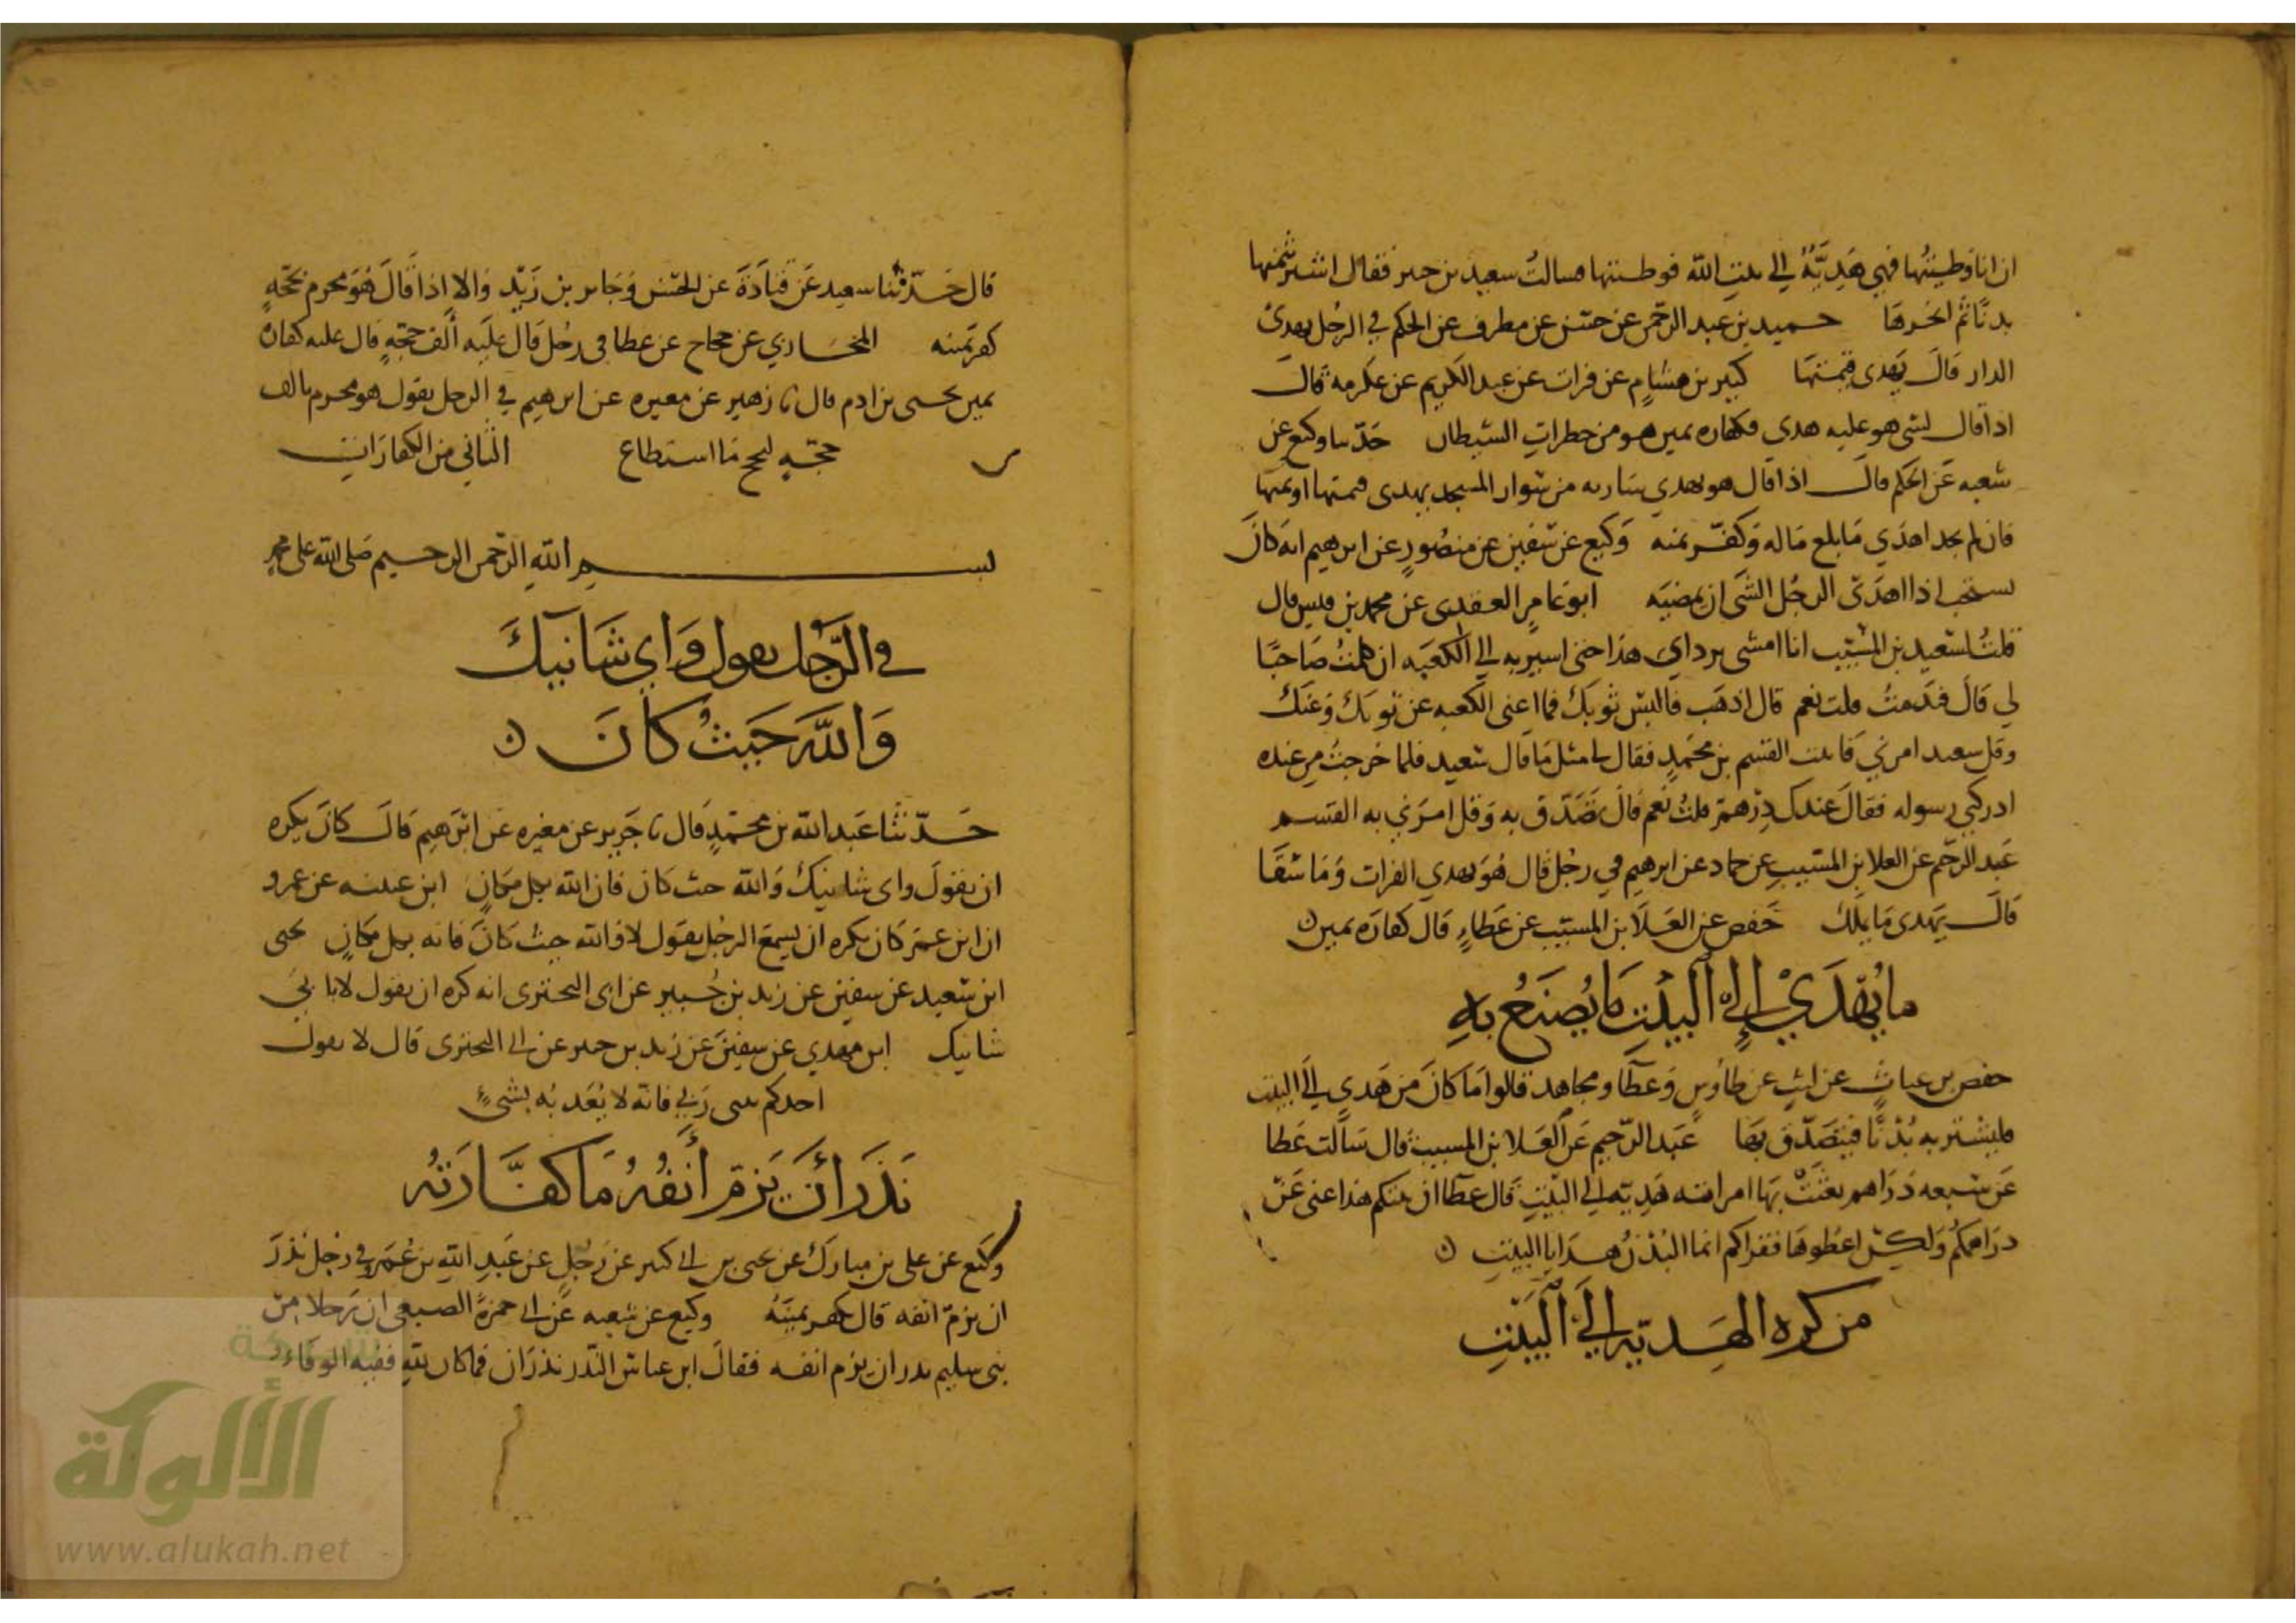 ان انا وطيتها فهي هدية الى بيت الله فوطيتها فسالت سعيد بن جبير فقال اشتر بثمنها
بدنا ثم انحرها حميد بن عبد الرحمن عن حسن عن مطرف عن الحكم في الرجل يهدي
الدار قال يهدي قيمتها كثير بن هشام عن فرات عن عبد الكريم عن عكرمة قال
اذا قال لشي هو عليه هدي فكفاره يمين هو من خطرات الشيطان حدثنا وكيع عن
شعبه عن الحكم قال اذا قال هو يهدي ساريه من سواري المسجد يهدي قيمتها او ثمنها
فان لم يجد اهدي ما بلغ ماله وكفر يمنه وكيع عن سفين عن منصور عن ابرهيم انه كان
يستحب اذا اهدى الرجل الشي ان يمضيه ابو عامر العقدي عن محمد بن قيس قال
قلت لسعيد بن المسيب انا امشي برداي هذا حتى اسير به الى الكعبه ان كلمت صاحبا
لي قال فندمت قلت نعم قال اذهب فالبس ثوبك فما اغنى الكعبه عن ثوبك وعنك
وقل سعيد امرني فاتيت القسم بن محمد فقال لي مثل ما قال سعيد فلما خرجت من عنده
ادركني رسوله فقال عندك درهم قلت نعم قال تصدق به وقل امرني به القسم
عبد الرحيم عن العلا بن المسيب عن حماد عن ابرهيم في رجل قال هو يهدي الفرات وما سقا
قال يهدي ما يملك حفص عن العلا بن المسيب عن عطاء قال كفاره يمين
ما يهدي إلى البيت ما يصنع به
حفص بن غياث عن ليث عن طاوس وعطا ومجاهد قالوا ما كان من هدي الى البيت
فليشتر به بدنا فيتصدق بها عبد الرحيم عن العلا بن المسيب قال سالت عطا
عن سبعه دراهم بعثت بها امراه هديه الى البيت قال عطا ان بيتكم هذا غني عن
دراهمكم ولكن اعطوها فقراكم انما البدن هدايا البيت
من كره الهدية الى البيت
قال حدثنا سعيد عن قتادة عن الحسن وجابر بن زيد قالا اذا قال هو محرم بحجة
كفر يمينه المحاربي عن حجاج عن عطا في رجل قال عليه ألف حجة قال عليه كفاره
يمين يحيى بن ادم قال نا زهير عن مغيره عن ابرهيم في الرجل يقول هو محرم بالف
حجه ليحج ما استطاع الثاني من الكفارات
بسم الله الرحمن الرحيم صلى الله على محمد
في الرجل يقول واي شانيك
والله حيث كان
حدثنا عبد الله بن محمد قال نا جرير عن مغيره عن ابرهيم قال كان يكره
ان يقول واي شانيك والله حيث كان فان الله بكل مكان ابن عيينه عن عمرو
ان ابن عمر كان يكره ان يسمع الرجل يقول لا والله حيث كان فانه بكل مكان يحيى
ابن سعيد عن سفين عن زيد بن جبير عن ابي البختري انه كره ان يقول لا باني
شانيك ابن مهدي عن سفين عن زيد بن جبير عن ابي البختري قال لا يقول
احدكم ربي فانه لا يعذبه بشيء
نذر أن يزم أنفه ما كفارته
وكيع عن علي بن مبارك عن يحيى بن ابي كثير عن رجل عن عبد الله بن عمر في رجل نذر
ان يزم انفه قال يكفر يمينه وكيع عن شعبه عن ابي حمزة الضبعي ان رجلا من
بني سليم نذر ان يزم انفه فقال ابن عباس النذر نذران فما كان لله ففيه الوفاء و
شبكة
الألوكة
www.alukah.net